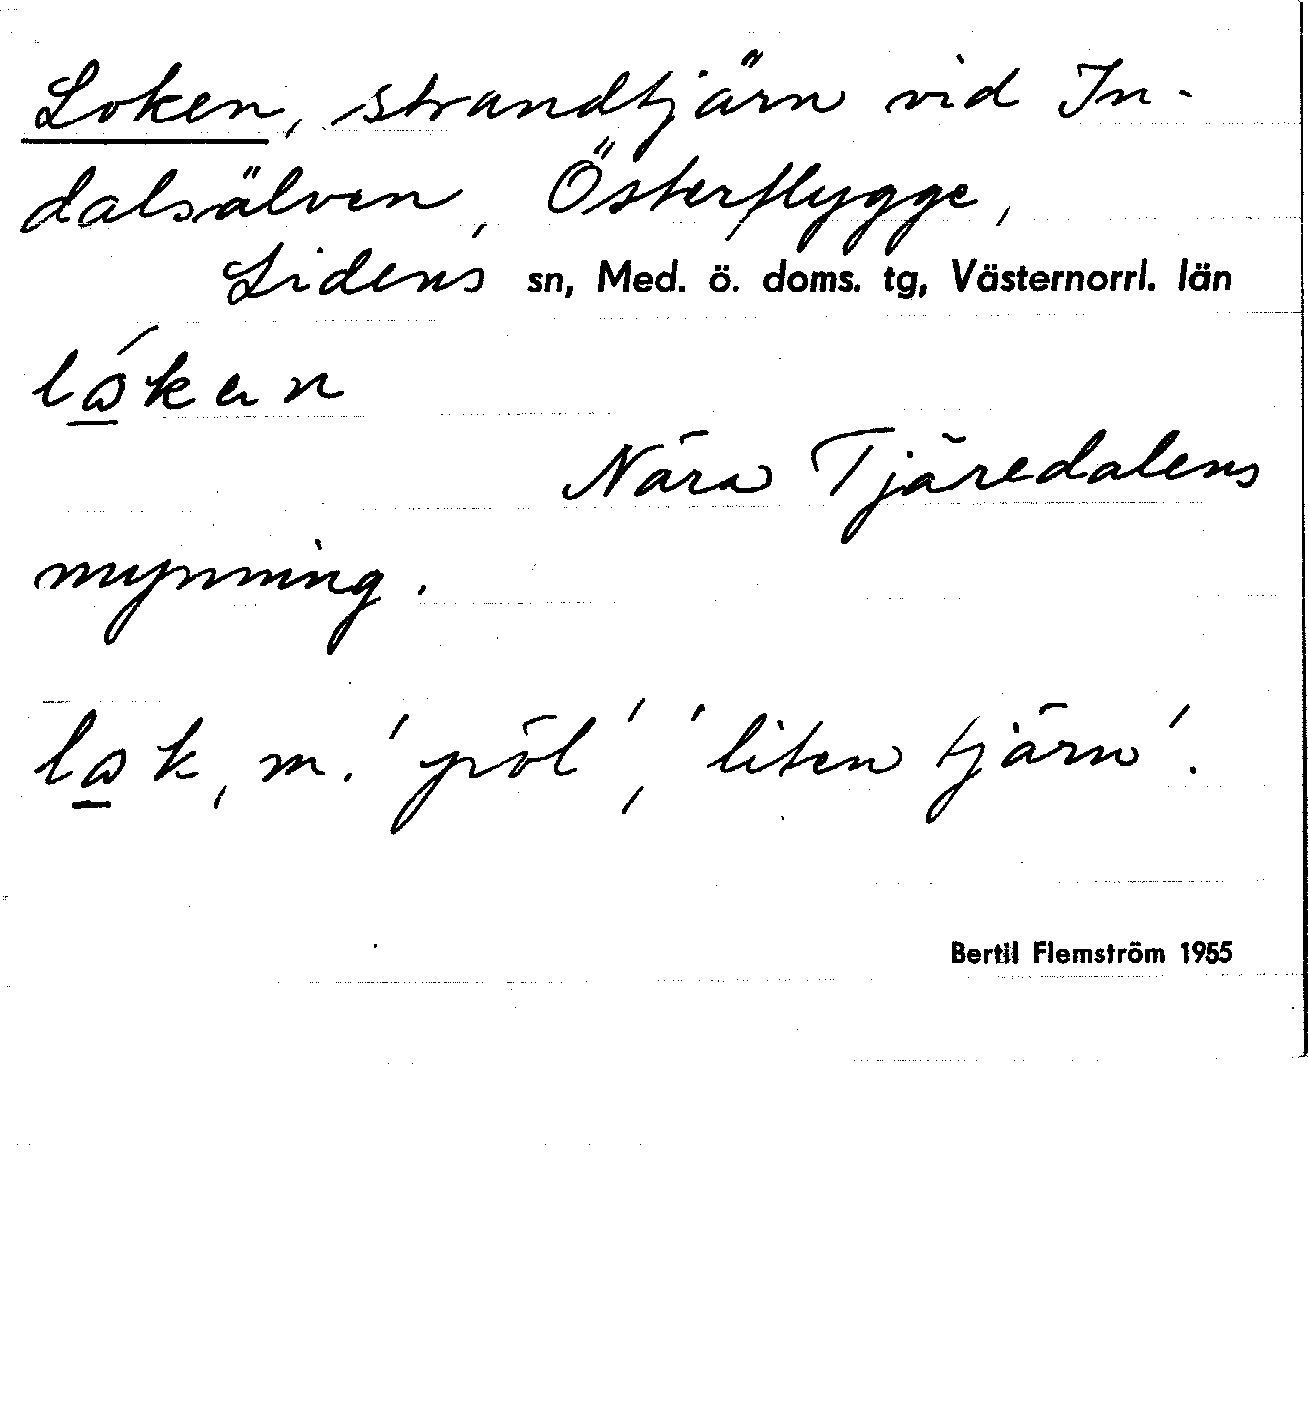 Loken, strandtjärn vid In-
dalsälven, Österflygge,
Lidens sn, Med. ö. doms. tg, Västernorrl. län
Nära Tjäredalens
mynning.
m. 'pöl', 'liten tjärn'.
Bertil Flemström 1955